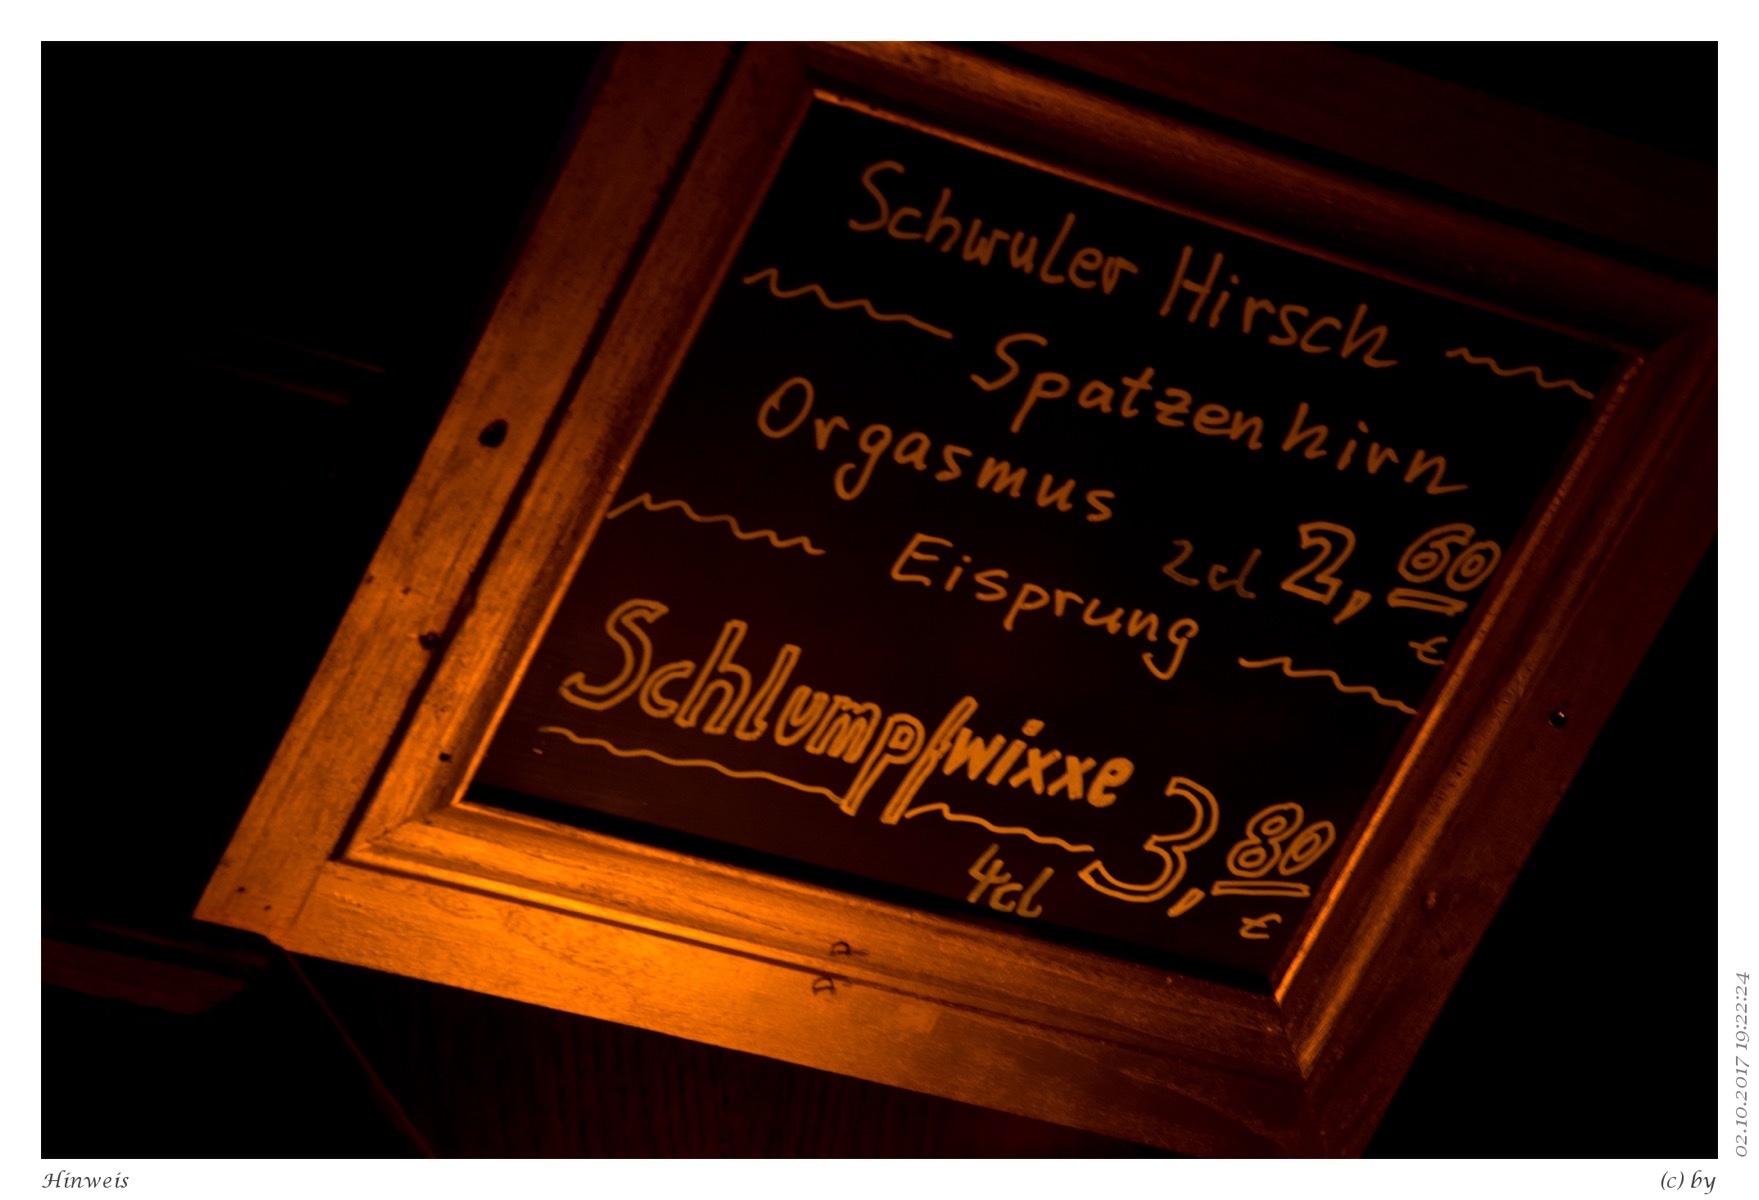 Schwuler Hirsch
Spatzenhirn
Orgasmus 2cl 2,60 €
Eisprung
Schlumpfwixxe 3,80 €
4cl
Hinweis
(c) by
02.10.2017 19:22:24